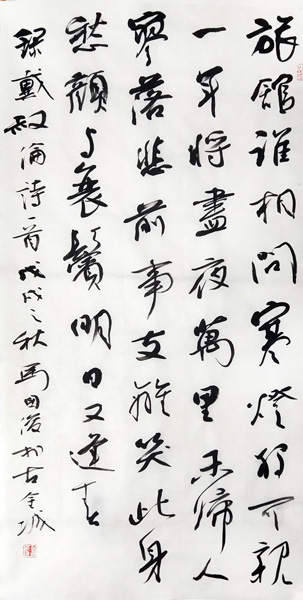 旅館誰相問寒燈獨可親
一年將盡夜萬里未歸人
寥落悲前事支離笑此身
愁顏与衰鬢明日又逢春
録戴叔倫詩一首戊戌之秋馬國俊於古金城